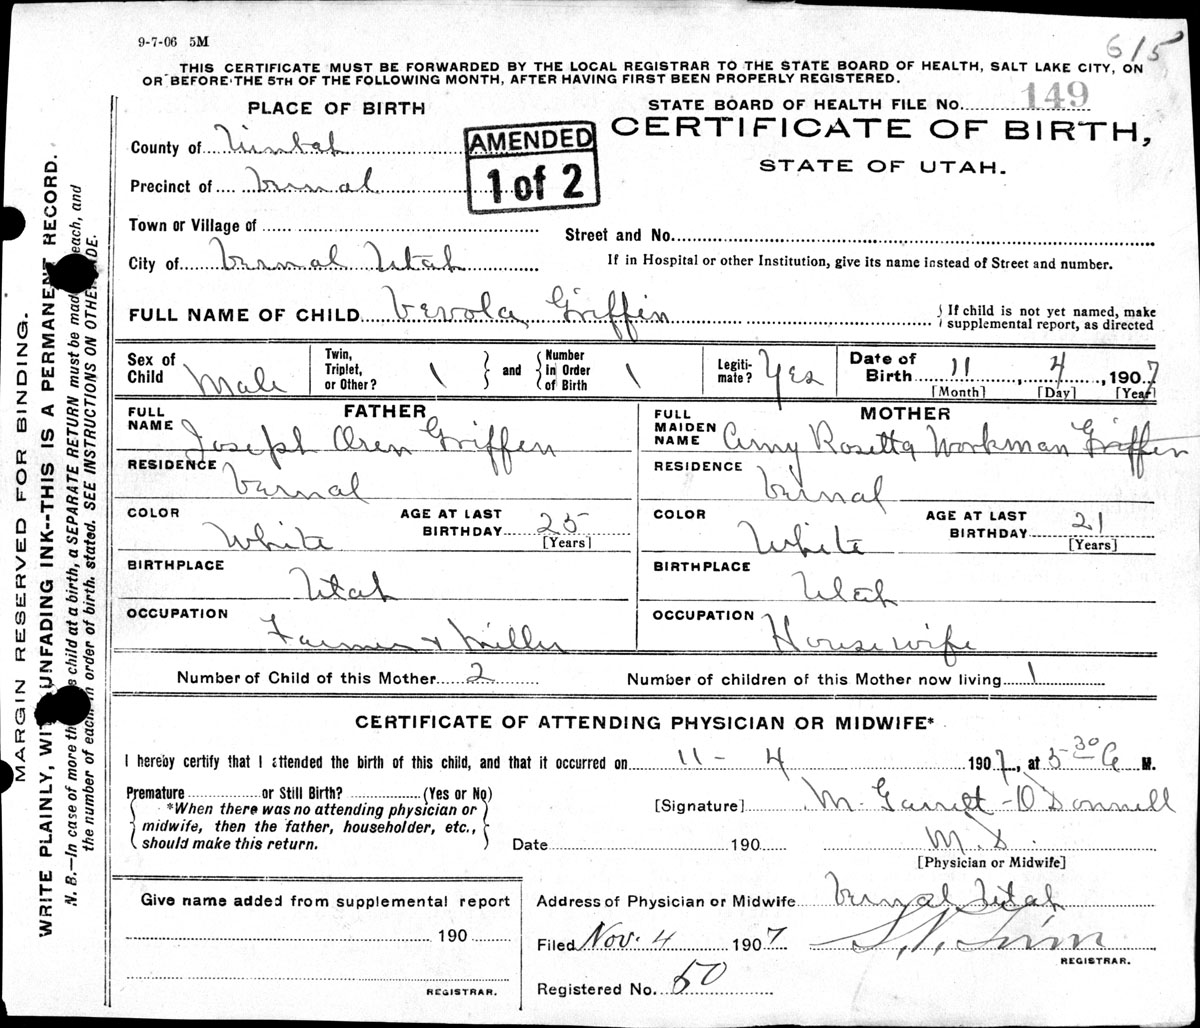 9-7-06 5M
615
THIS CERTIFICATE MUST BE FORWARDED BY THE LOCAL REGISTRAR TO THE STATE BOARD OF HEALTH, SALT LAKE CITY, ON
OR BEFORE THE 5TH OF THE FOLLOWING MONTH, AFTER HAVING FIRST BEEN PROPERLY REGISTERED.
PLACE OF BIRTH
STATE BOARD OF HEALTH FILE No. 149
CERTIFICATE OF BIRTH,
STATE OF UTAH.
AMENDED
1 of 2
County of
Precinct of Vernal
Town or Village of
Street and No.
City of Vernal Utah
If in Hospital or other Institution, give its name instead of Street and number.
FULL NAME OF CHILD Vevola Griffin
{ If child is not yet named, make
supplemental report, as directed
Sex of Child Male
Twin, Triplet, or Other? 1 } and { Number in Order of Birth 1
Legiti-mate? Yes
Date of Birth 11, 4, 1907
[Month] [Day] [Year]
FATHER
FULL NAME Joseph Oren Griffin
RESIDENCE Vernal
COLOR White
AGE AT LAST BIRTHDAY 25
[Years]
BIRTHPLACE Utah
OCCUPATION Farmer + Miller
MOTHER
FULL MAIDEN NAME Amy Rosetta Workman Griffin
RESIDENCE Vernal
COLOR White
AGE AT LAST BIRTHDAY 21
[Years]
BIRTHPLACE Utah
OCCUPATION Housewife
Number of Child of this Mother 2
Number of children of this Mother now living 1
CERTIFICATE OF ATTENDING PHYSICIAN OR MIDWIFE*
I hereby certify that I attended the birth of this child, and that it occurred on 11 - 4 1907, at 5 30 A M.
Premature or Still Birth? (Yes or No)
{ *When there was no attending physician or
midwife, then the father, householder, etc.,
should make this return. }
[Signature] M. Garrett-O'Donnell
Date 190
M.D.
[Physician or Midwife]
Give name added from supplemental report
190
REGISTRAR.
Address of Physician or Midwife Vernal Utah
Filed Nov. 4 1907
REGISTRAR.
Registered No. 50
MARGIN RESERVED FOR BINDING.
WRITE PLAINLY, WITH UNFADING INK--THIS IS A PERMANENT RECORD.
N. B.—In case of more than child at a birth, a SEPARATE RETURN must be made each, and
the number of each, in order of birth, stated. SEE INSTRUCTIONS ON OTHER SIDE.